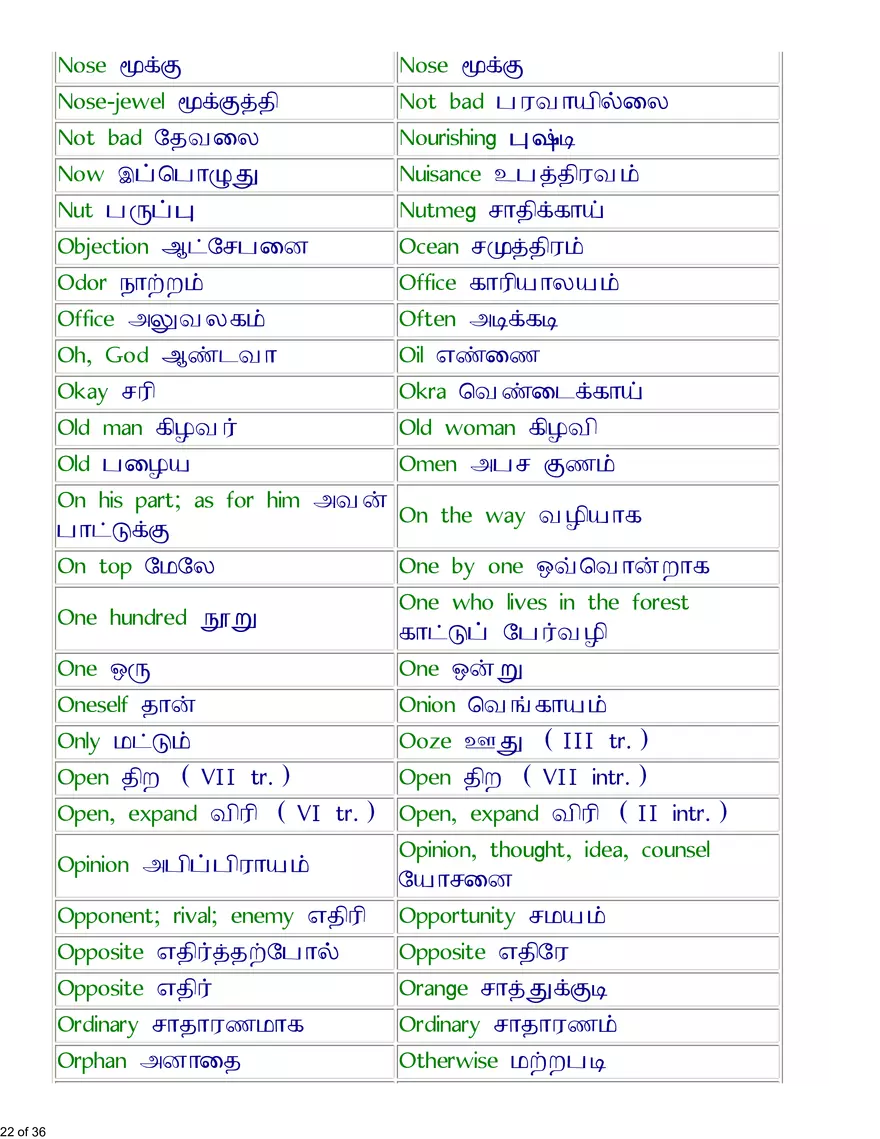 Nose மூக்கு
Nose மூக்கு
Nose-jewel மூக்குத்தி
Not bad பரவாயில்லை
Not bad தேவலை
Nourishing புஷ்டி
Now இப்பொழுது
Nuisance உபத்திரவம்
Nut பருப்பு
Nutmeg சாதிக்காய்
Objection ஆட்சேபனை
Ocean சமுத்திரம்
Odor நாற்றம்
Office காரியாலயம்
Office அலுவலகம்
Often அடிக்கடி
Oh, God ஆண்டவா
Oil எண்ணை
Okay சரி
Okra வெண்டைக்காய்
Old man கிழவர்
Old woman கிழவி
Old பழைய
Omen அபச குணம்
On his part; as for him அவன்
பாட்டுக்கு
On the way வழியாக
On top மேலே
One by one ஒவ்வொன்றாக
One hundred நூறு
One who lives in the forest
காட்டுப் பேர்வழி
One ஒரு
One ஒன்று
Oneself தான்
Onion வெங்காயம்
Only மட்டும்
Ooze ஊது ( III tr. )
Open திற ( VII tr. )
Open திற ( VII intr. )
Open, expand விரி ( VI tr. )
Open, expand விரி ( II intr. )
Opinion அபிப்பிராயம்
Opinion, thought, idea, counsel
யோசனை
Opponent; rival; enemy எதிரி
Opportunity சமயம்
Opposite எதிர்த்தற்போல்
Opposite எதிரே
Opposite எதிர்
Orange சாத்துக்குடி
Ordinary சாதாரணமாக
Ordinary சாதாரணம்
Orphan அனாதை
Otherwise மற்றபடி
22 of 36